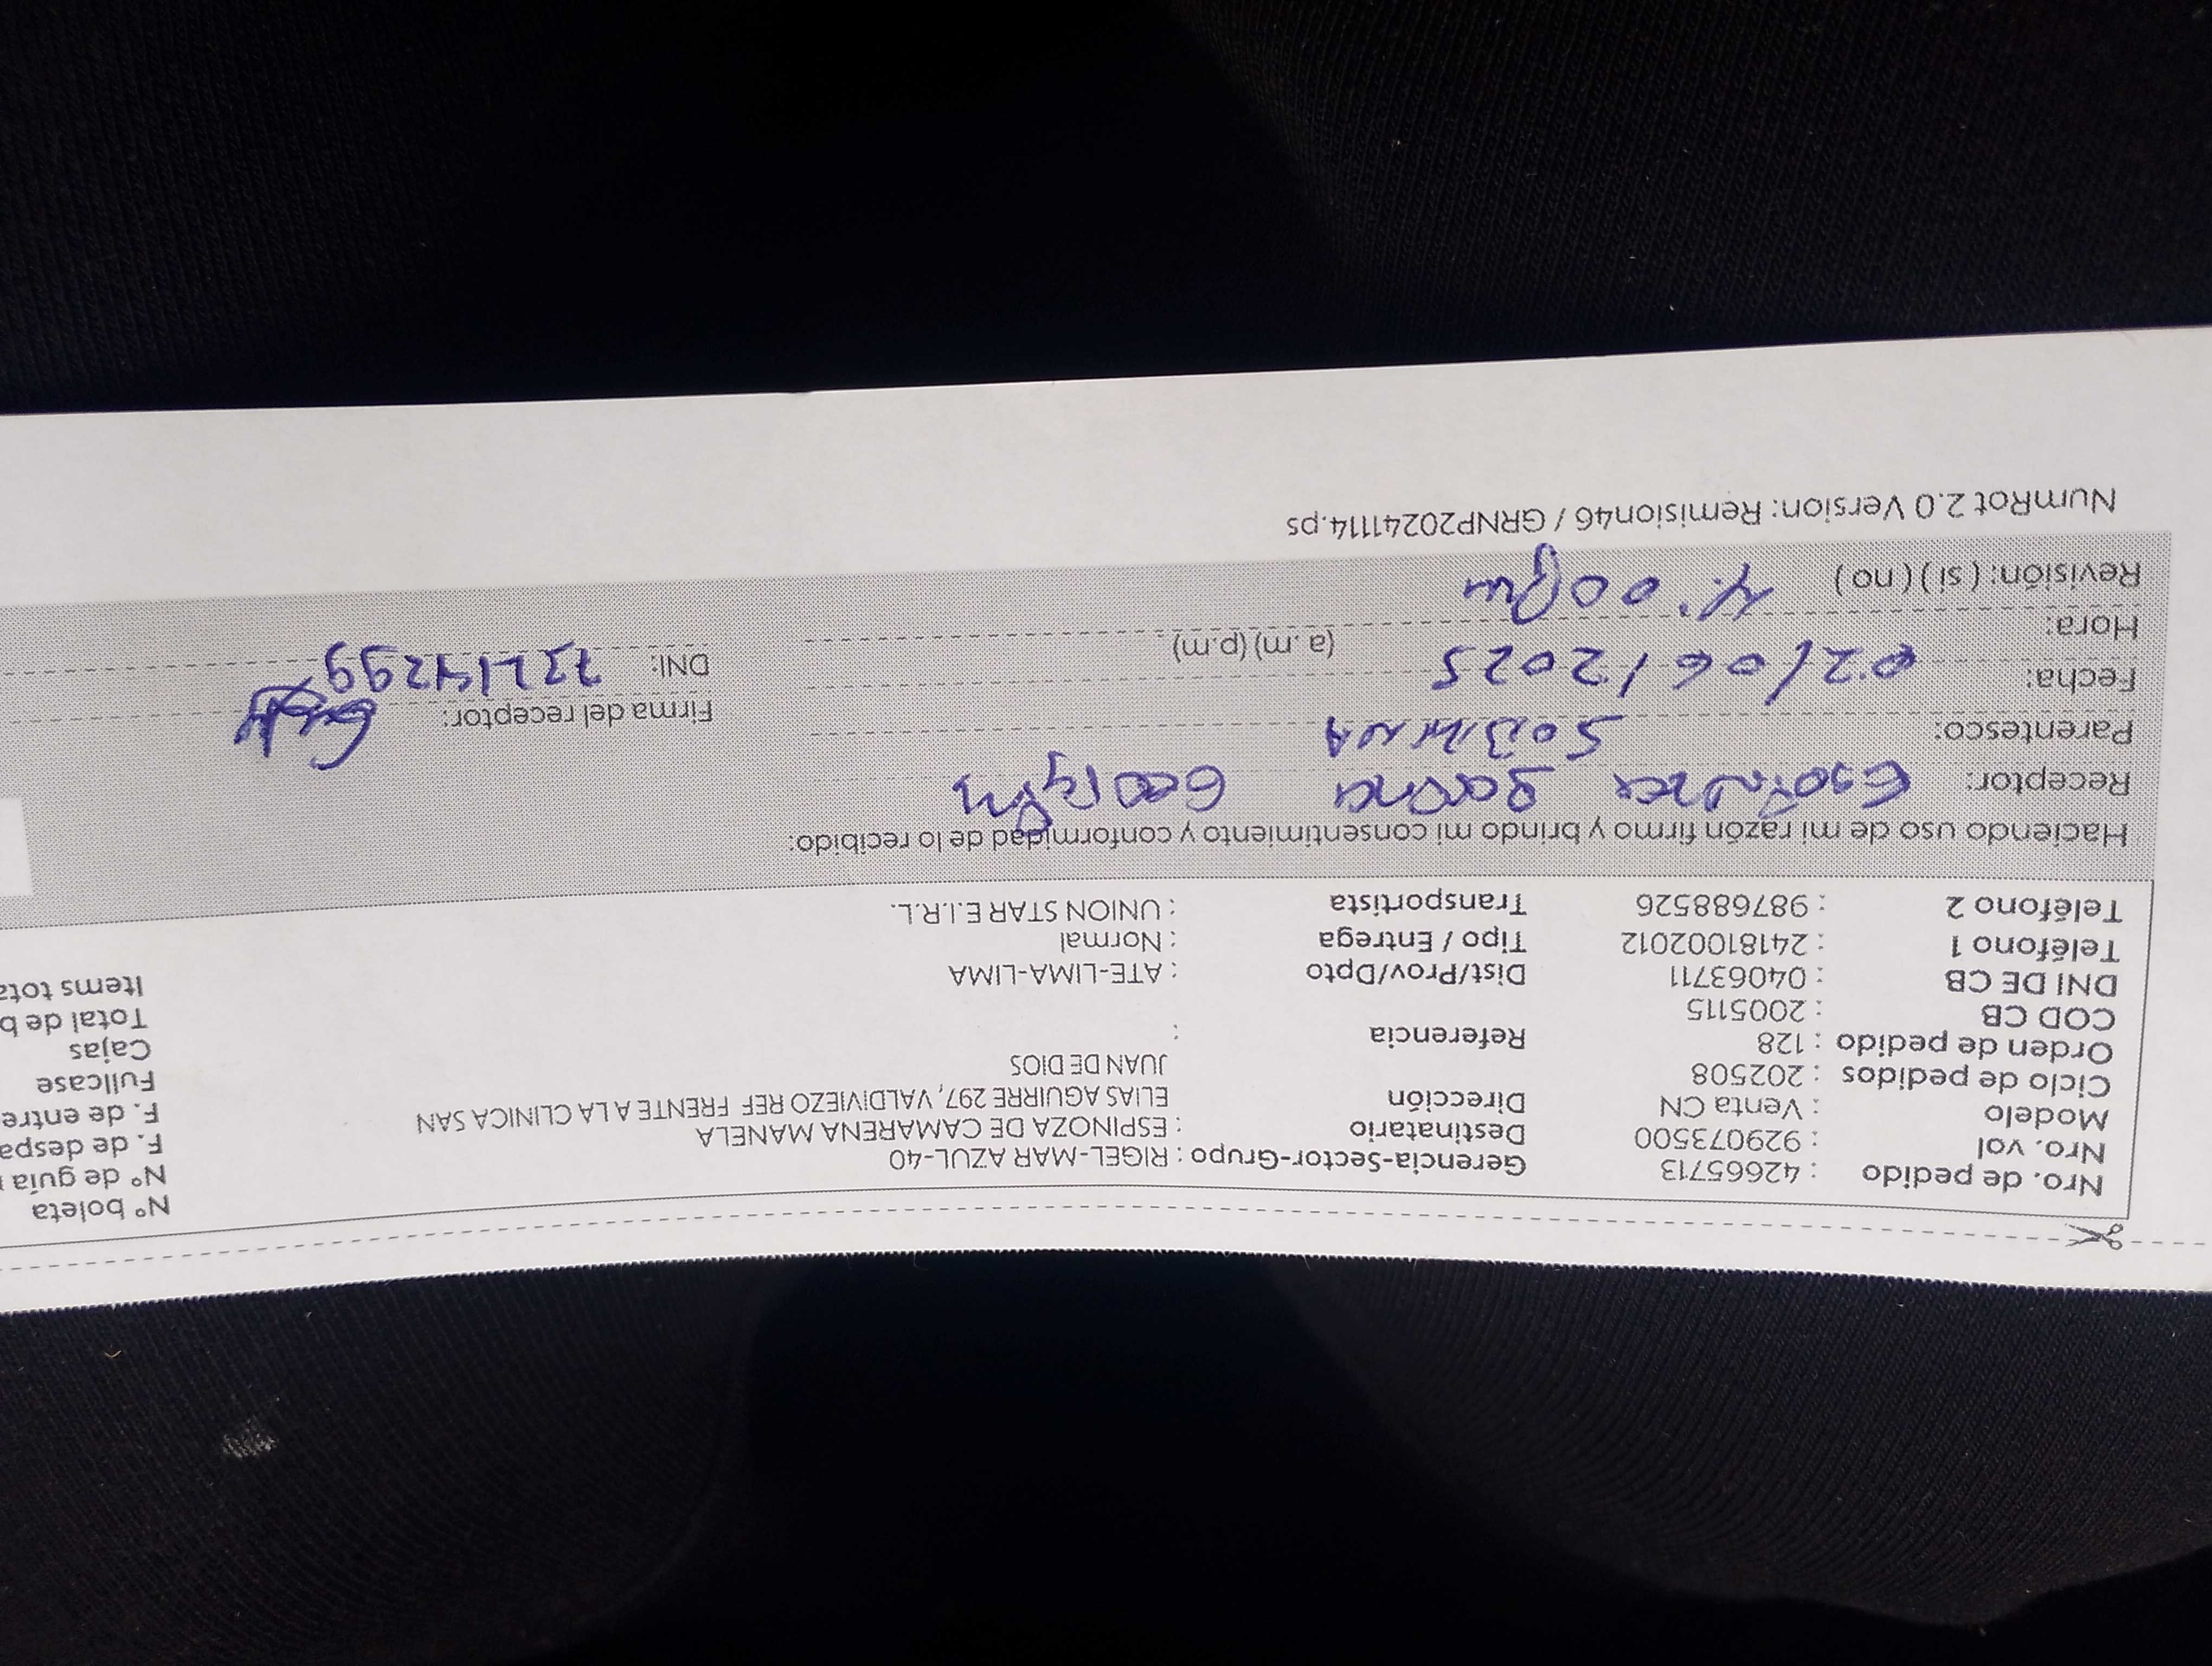 Nro. de pedido : 42665713 Gerencia-Sector-Grupo : RIGEL-MAR AZUL-40 N° boleta
Nro. vol : 929073500 Destinatario : ESPINOZA DE CAMARENA MANELA N° de guía
Modelo : Venta CN Dirección ELIAS AGUIRRE 297, VALDIVIEZO REF FRENTE A LA CLINICA SAN F. de despa
Ciclo de pedidos : 202508 JUAN DE DIOS F. de entre
Orden de pedido : 128 Referencia : Fullcase
COD CB : 2005115 Cajas
DNI DE CB : 04063711 Dist/Prov/Dpto : ATE-LIMA-LIMA Total de b
Teléfono 1 : 24181002012 Tipo / Entrega : Normal Items tota
Teléfono 2 : 987688526 Transportista : UNION STAR E.I.R.L.
Haciendo uso de mi razón firmo y brindo mi consentimiento y conformidad de lo recibido:
Receptor: Espinoza
Parentesco: SOBRINA Firma del receptor:
Fecha: 02/06/2025 DNI: 72214299
Hora: (a.m) (p.m)
Revisión: ( si ) ( no ) 4:00 pm
NumRot 2.0 Version: Remision46 / GRNP20241114.ps